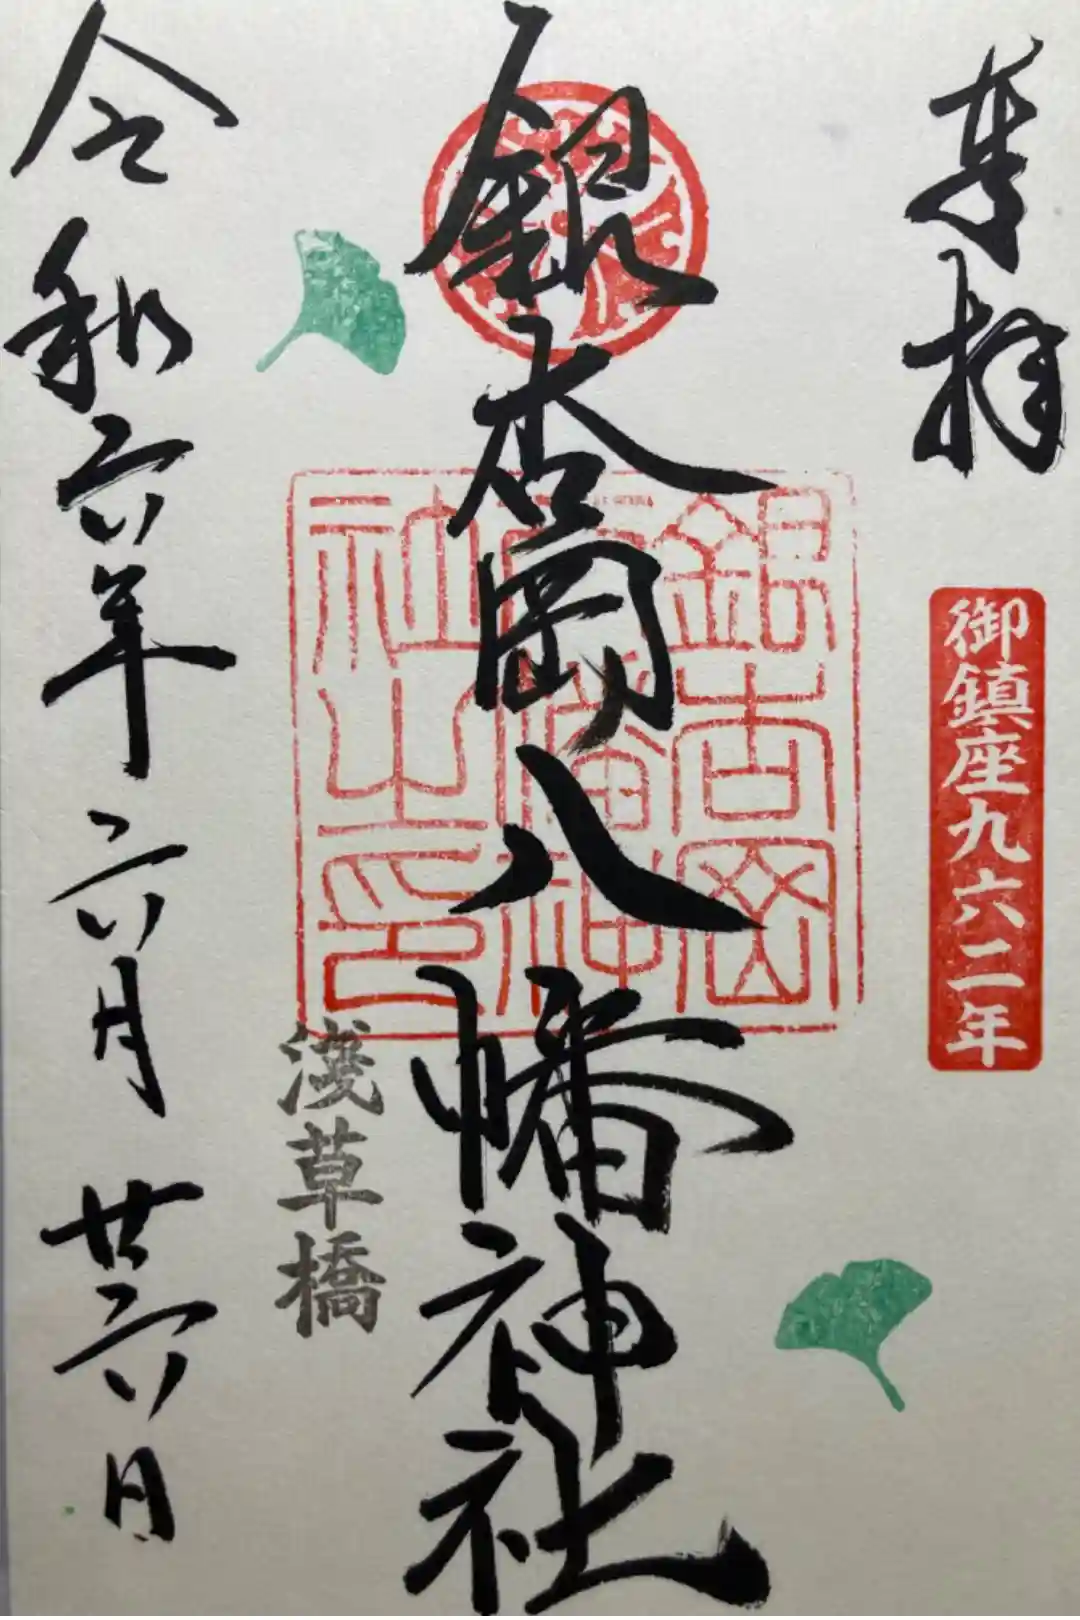 奉拝
御鎮座九六二年
銀杏岡八幡神社
銀杏岡
八幡神
社之印
淺草橋
令和六年六月廿六日